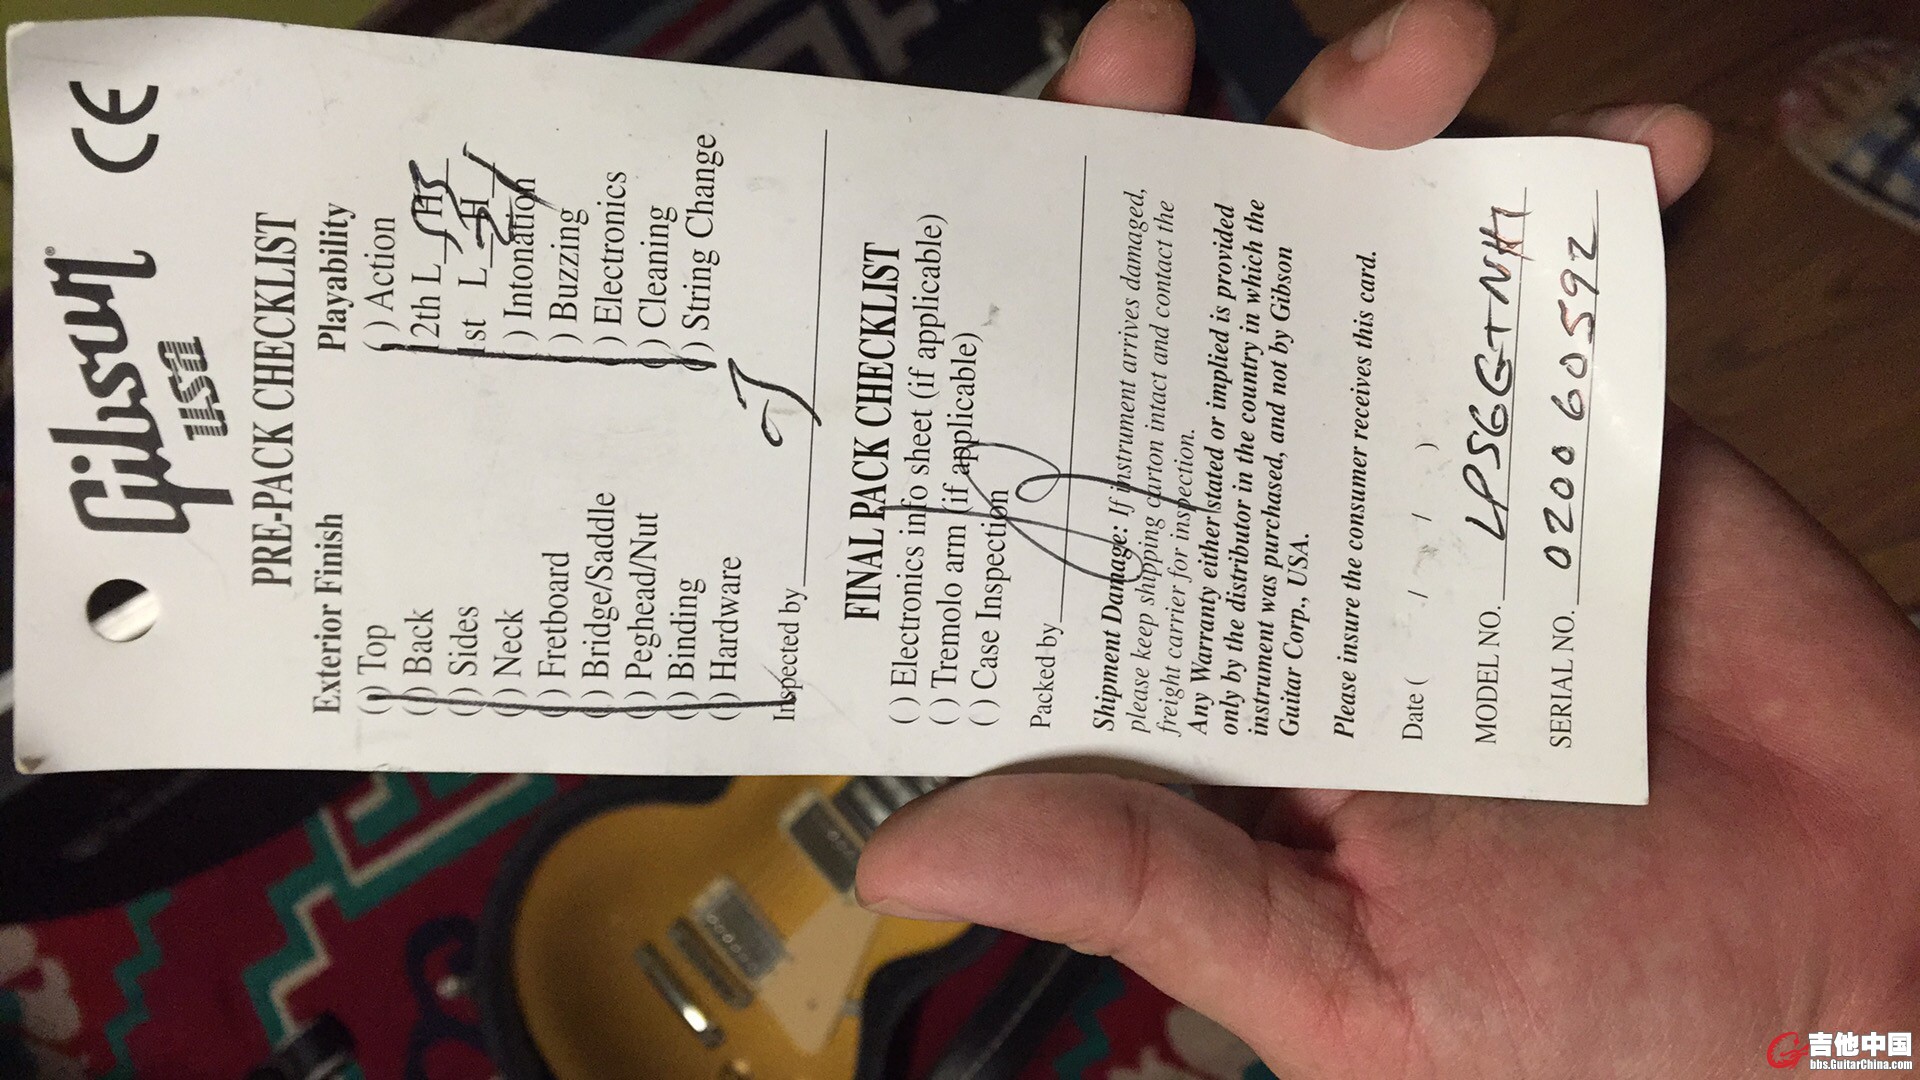 Gibson
USA
CE
PRE-PACK CHECKLIST
Exterior Finish
( ) Top
( ) Back
( ) Sides
( ) Neck
( ) Fretboard
( ) Bridge/Saddle
( ) Peghead/Nut
( ) Binding
( ) Hardware
Playability
( ) Action
12th L 5 H 5
1st L 2 H 1
( ) Intonation
( ) Buzzing
( ) Electronics
( ) Cleaning
( ) String Change
Inspected by
FINAL PACK CHECKLIST
( ) Electronics info sheet (if applicable)
( ) Tremolo arm (if applicable)
( ) Case Inspection
Packed by
Shipment Damage: If instrument arrives damaged,
please keep shipping carton intact and contact the
freight carrier for inspection.
Any Warranty either stated or implied is provided
only by the distributor in the country in which the
instrument was purchased, and not by Gibson
Guitar Corp., USA.
Please insure the consumer receives this card.
Date ( / / )
MODEL NO. LPSGGTNH1
SERIAL NO. 020060592
吉他中国
bbs.GuitarChina.com